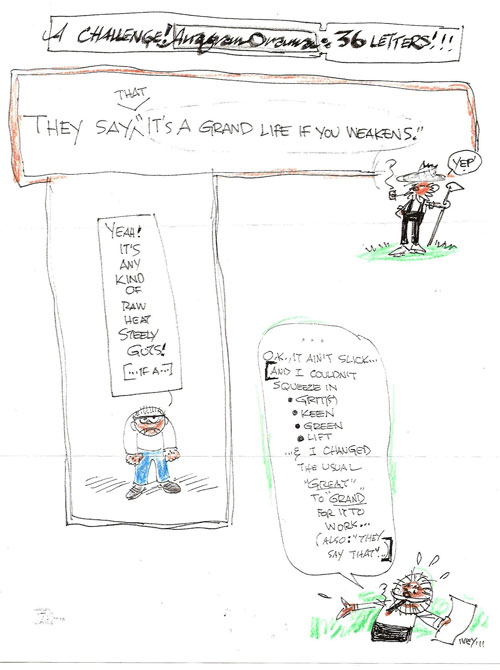 A CHALLENGE! Anagram Drama: 36 LETTERS!!!
THAT
THEY SAY, "IT'S A GRAND LIFE IF YOU WEAKENS."
YEP!
YEAH!
IT'S
ANY
KIND
OF
RAW
HEAT
STEELY
GUTS!
[...IF A...]
...
O.K., IT AIN'T SLICK...
[AND I COULDN'T
SQUEEZE IN
• GRIT(S)
• KEEN
• GREEN
• LIFT
...& I CHANGED
THE USUAL
"GREAT"
TO "GRAND"
FOR IT TO
WORK...
(ALSO: "THEY
SAY THAT"...]